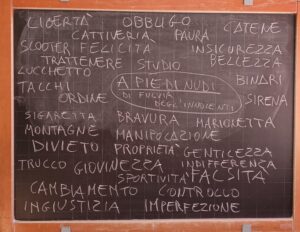 LIBERTÀ OBBLIGO CATENE
CATTIVERIA PAURA
SCOOTER FELICITÀ INSICUREZZA
TRATTENERE STUDIO BELLEZZA
LUCCHETTO A PIEDI NUDI BINARI
TACCHI DI FULVIA
ORDINE DEGL'INNOCENTI SIRENA
SIGARETTA BRAVURA MARIONETTA
MONTAGNE MANIPOLAZIONE
DIVIETO PROPRIETÀ GENTILEZZA
TRUCCO GIOVINEZZA INDIFFERENZA
SPORTIVITÀ FALSITÀ
CAMBIAMENTO CONTROLLO
INGIUSTIZIA IMPERFEZIONE